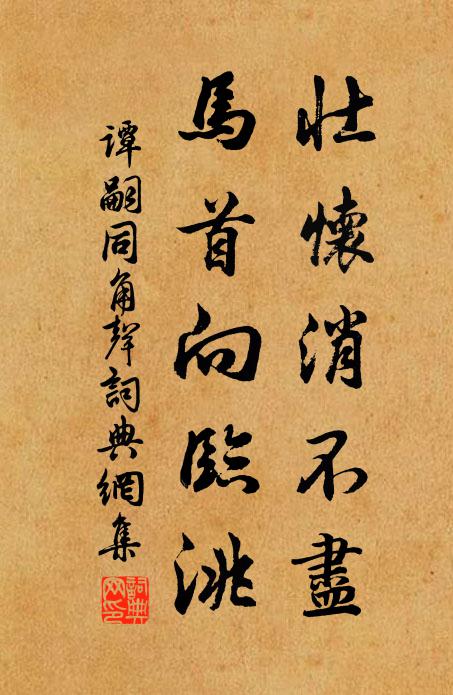 壯懷消不盡
馬首向臨洮
譚嗣同角聲詞典網集
詞典网印